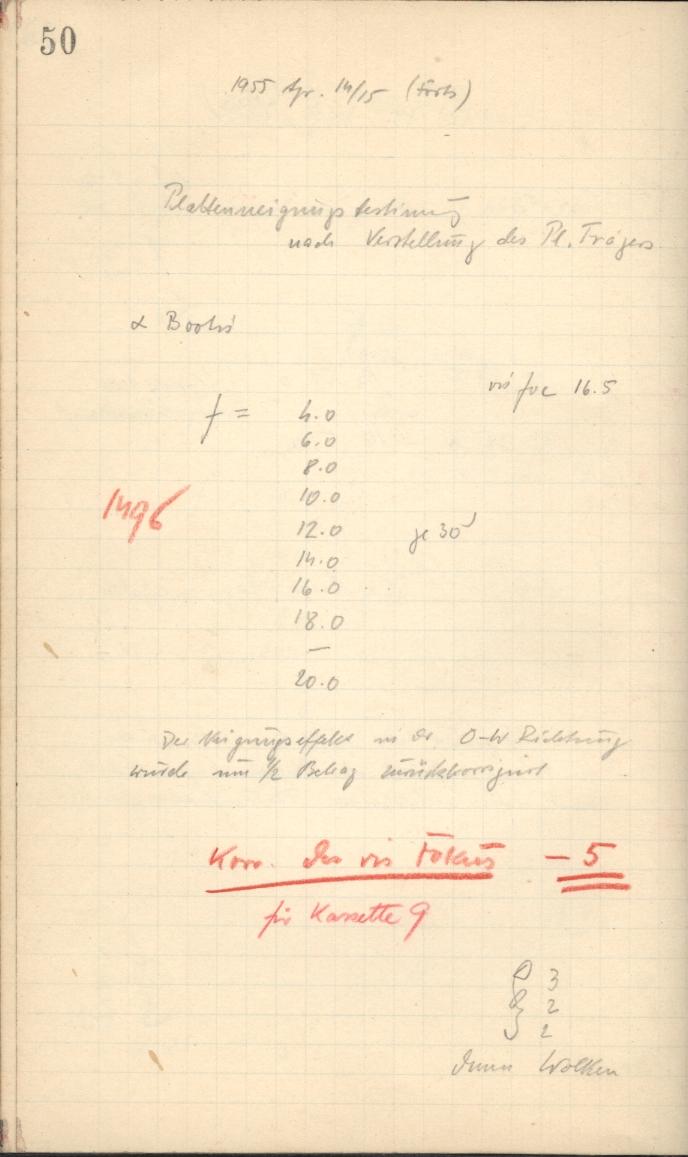 50
1955 Apr. 14/15 (Forts)
Plattenneigungsbestimmung
nach Verstellung des Pl. Trägers
α Bootis
vis foc 16.5
f = 4.0
6.0
8.0
10.0
1496
12.0 je 30s
14.0
16.0
18.0
—
20.0
Der Neigungseffekt in der O-W Richtung
wurde um 1/2 Betrag zurückkorrigiert
Korr. des vis Fokus — 5
für Kassette 9
3
2
2
dann Wolken